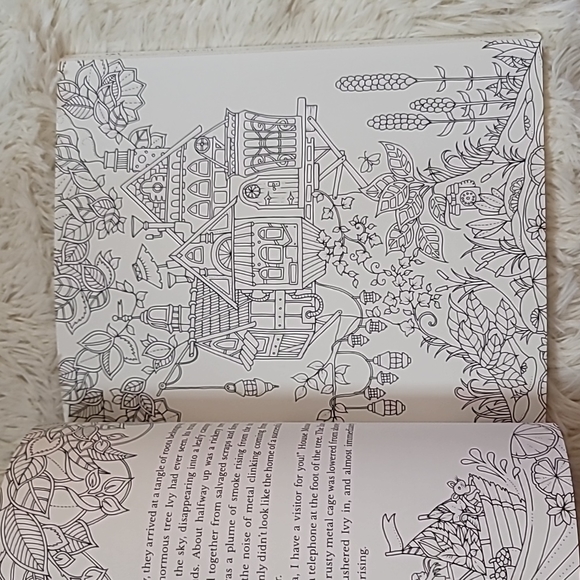 , they arrived at a tangle of roots
normous tree Ivy had ever seen. Its
the sky, disappearing into a leafy
ds. About halfway up was a rickety
l together from salvaged scraps and
was a plume of smoke rising from
the noise of metal clinking coming
nly didn't look like the home of a
a, I have a visitor for you!"
telephone at the foot of the tree.
rusty metal cage was lowered from
ushered Ivy in, and almost
rising.